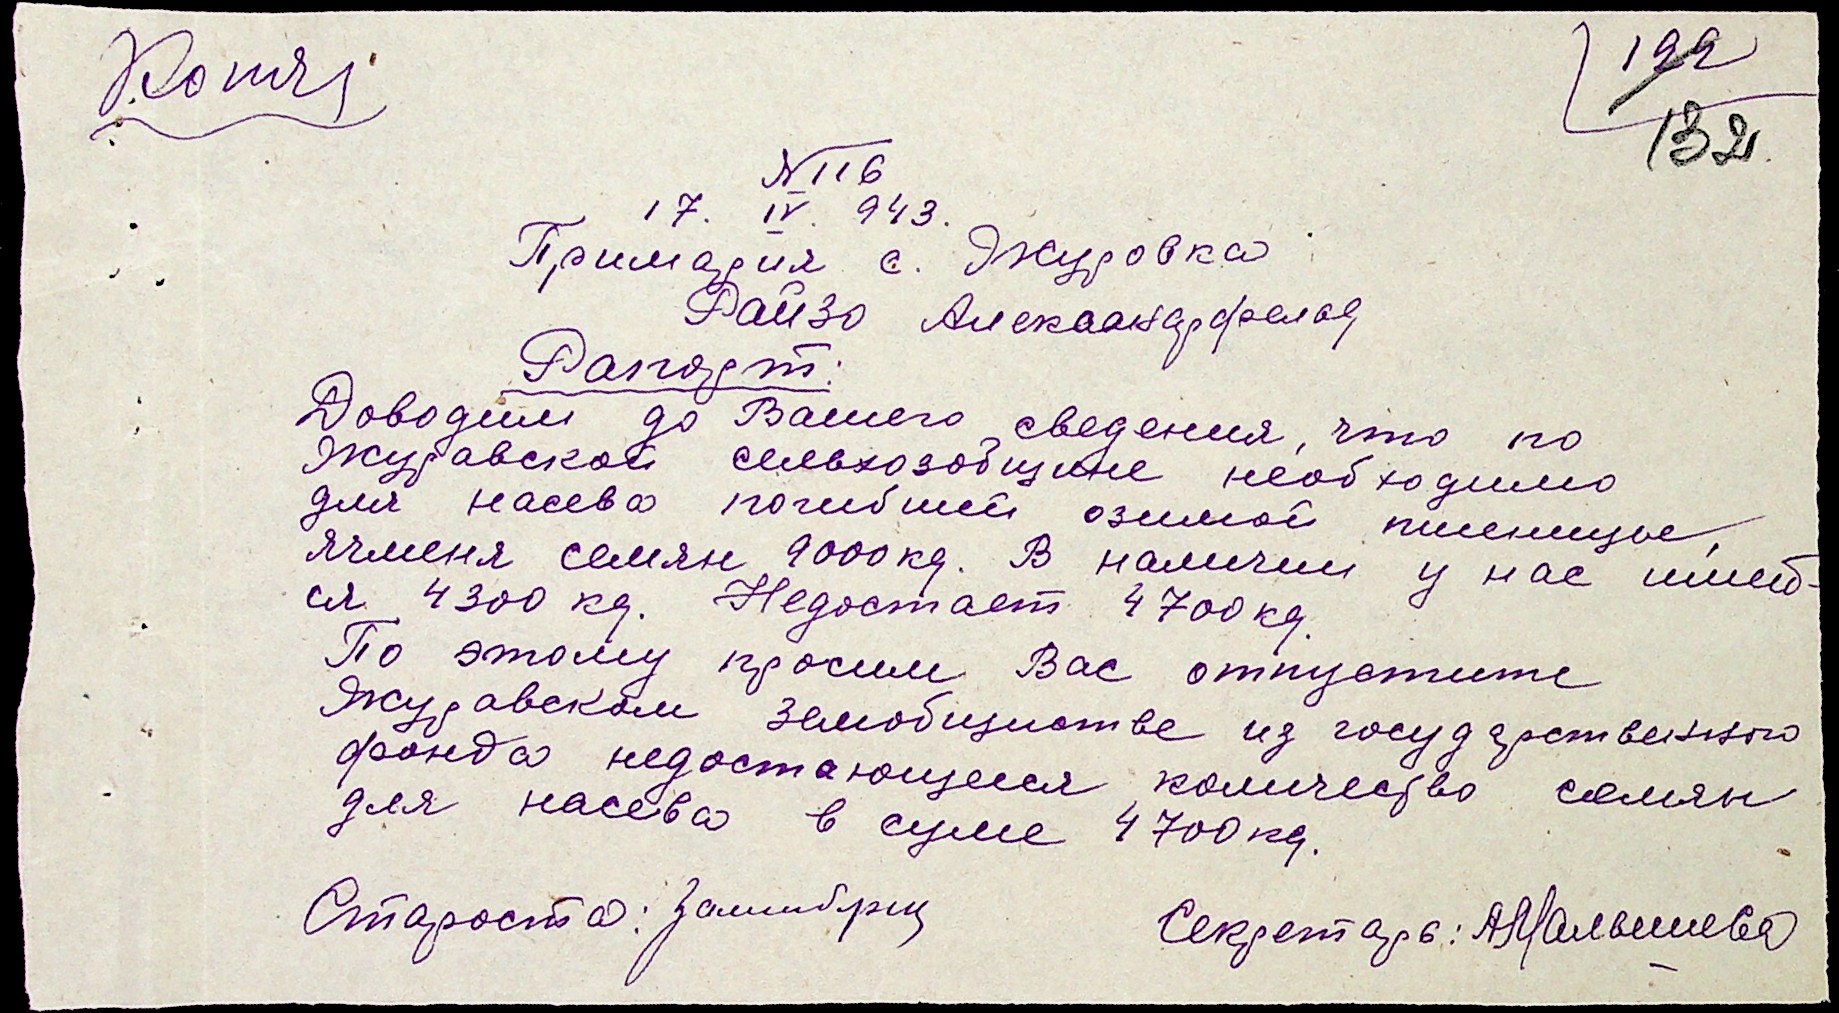 Копия
199
132
№ 116
17. IV. 943.
Примария с. Журовка
Райзо Александрфельд
Рапорт:
Доводим до Вашего сведения, что по
Журавской сельхозобщине необходимо
для насева погибшей озимой пшеницы,
ячменя семян 9000 кг. В наличии у нас имеет-
ся 4300 кг. Недостает 4700 кг.
По этому просим Вас отпустить
Журавском Земобществе из государственного
фонда недостающееся количество семян
для насева в суме 4700 кг.
Староста:
Секретарь: АМалышева